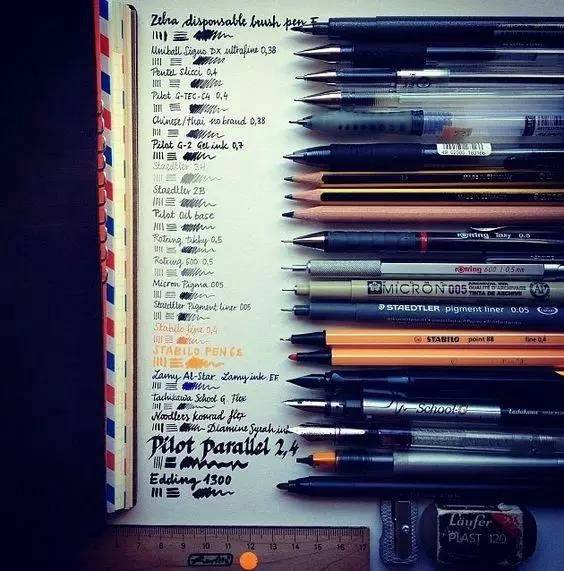 Zebra disposable brush pen F
Uniball Signo DX ultrafine 0,38
Pentel Slicci 0,4
Pilot G-TEC-C4 0,4
Chinese/thai no brand 0,38
Pilot G-2 Gel ink 0,7
Staedtler
Staedtler 2B
Pilot Oil base
Rotring tikky 0,5
Rotring 600 0,5
Micron Pigma 005
Staedtler Pigment liner 005
Stabilo fine 0,4
STABILO PEN 68
Lamy Al-Star. Lamy ink, EF
Tachikawa School G. Flex
Noodlers Konrad flex
Diamine Syrah ink
Pilot parallel 2,4
Edding 1300
rotring Tikky 0.5
rotring 600 0,5mm
MICRON 005
STAEDTLER pigment liner 0.05
STABILO point 88 fine 0,4
School-G Tachikawa
Läufer
PLAST 120
7 8 9 10 11 12 13 14 15 16 17